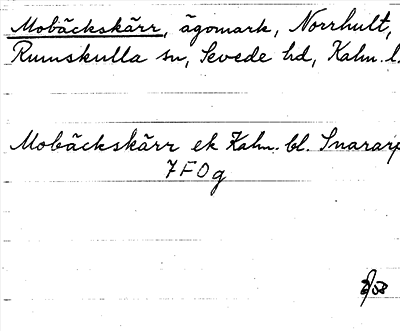 Mobäckskärr, ägomark, Norrhult,
Rumskulla sn, Sevede hd, Kalm. l.
Mobäckskärr ek Kalm. bl. Snararp
7F0g